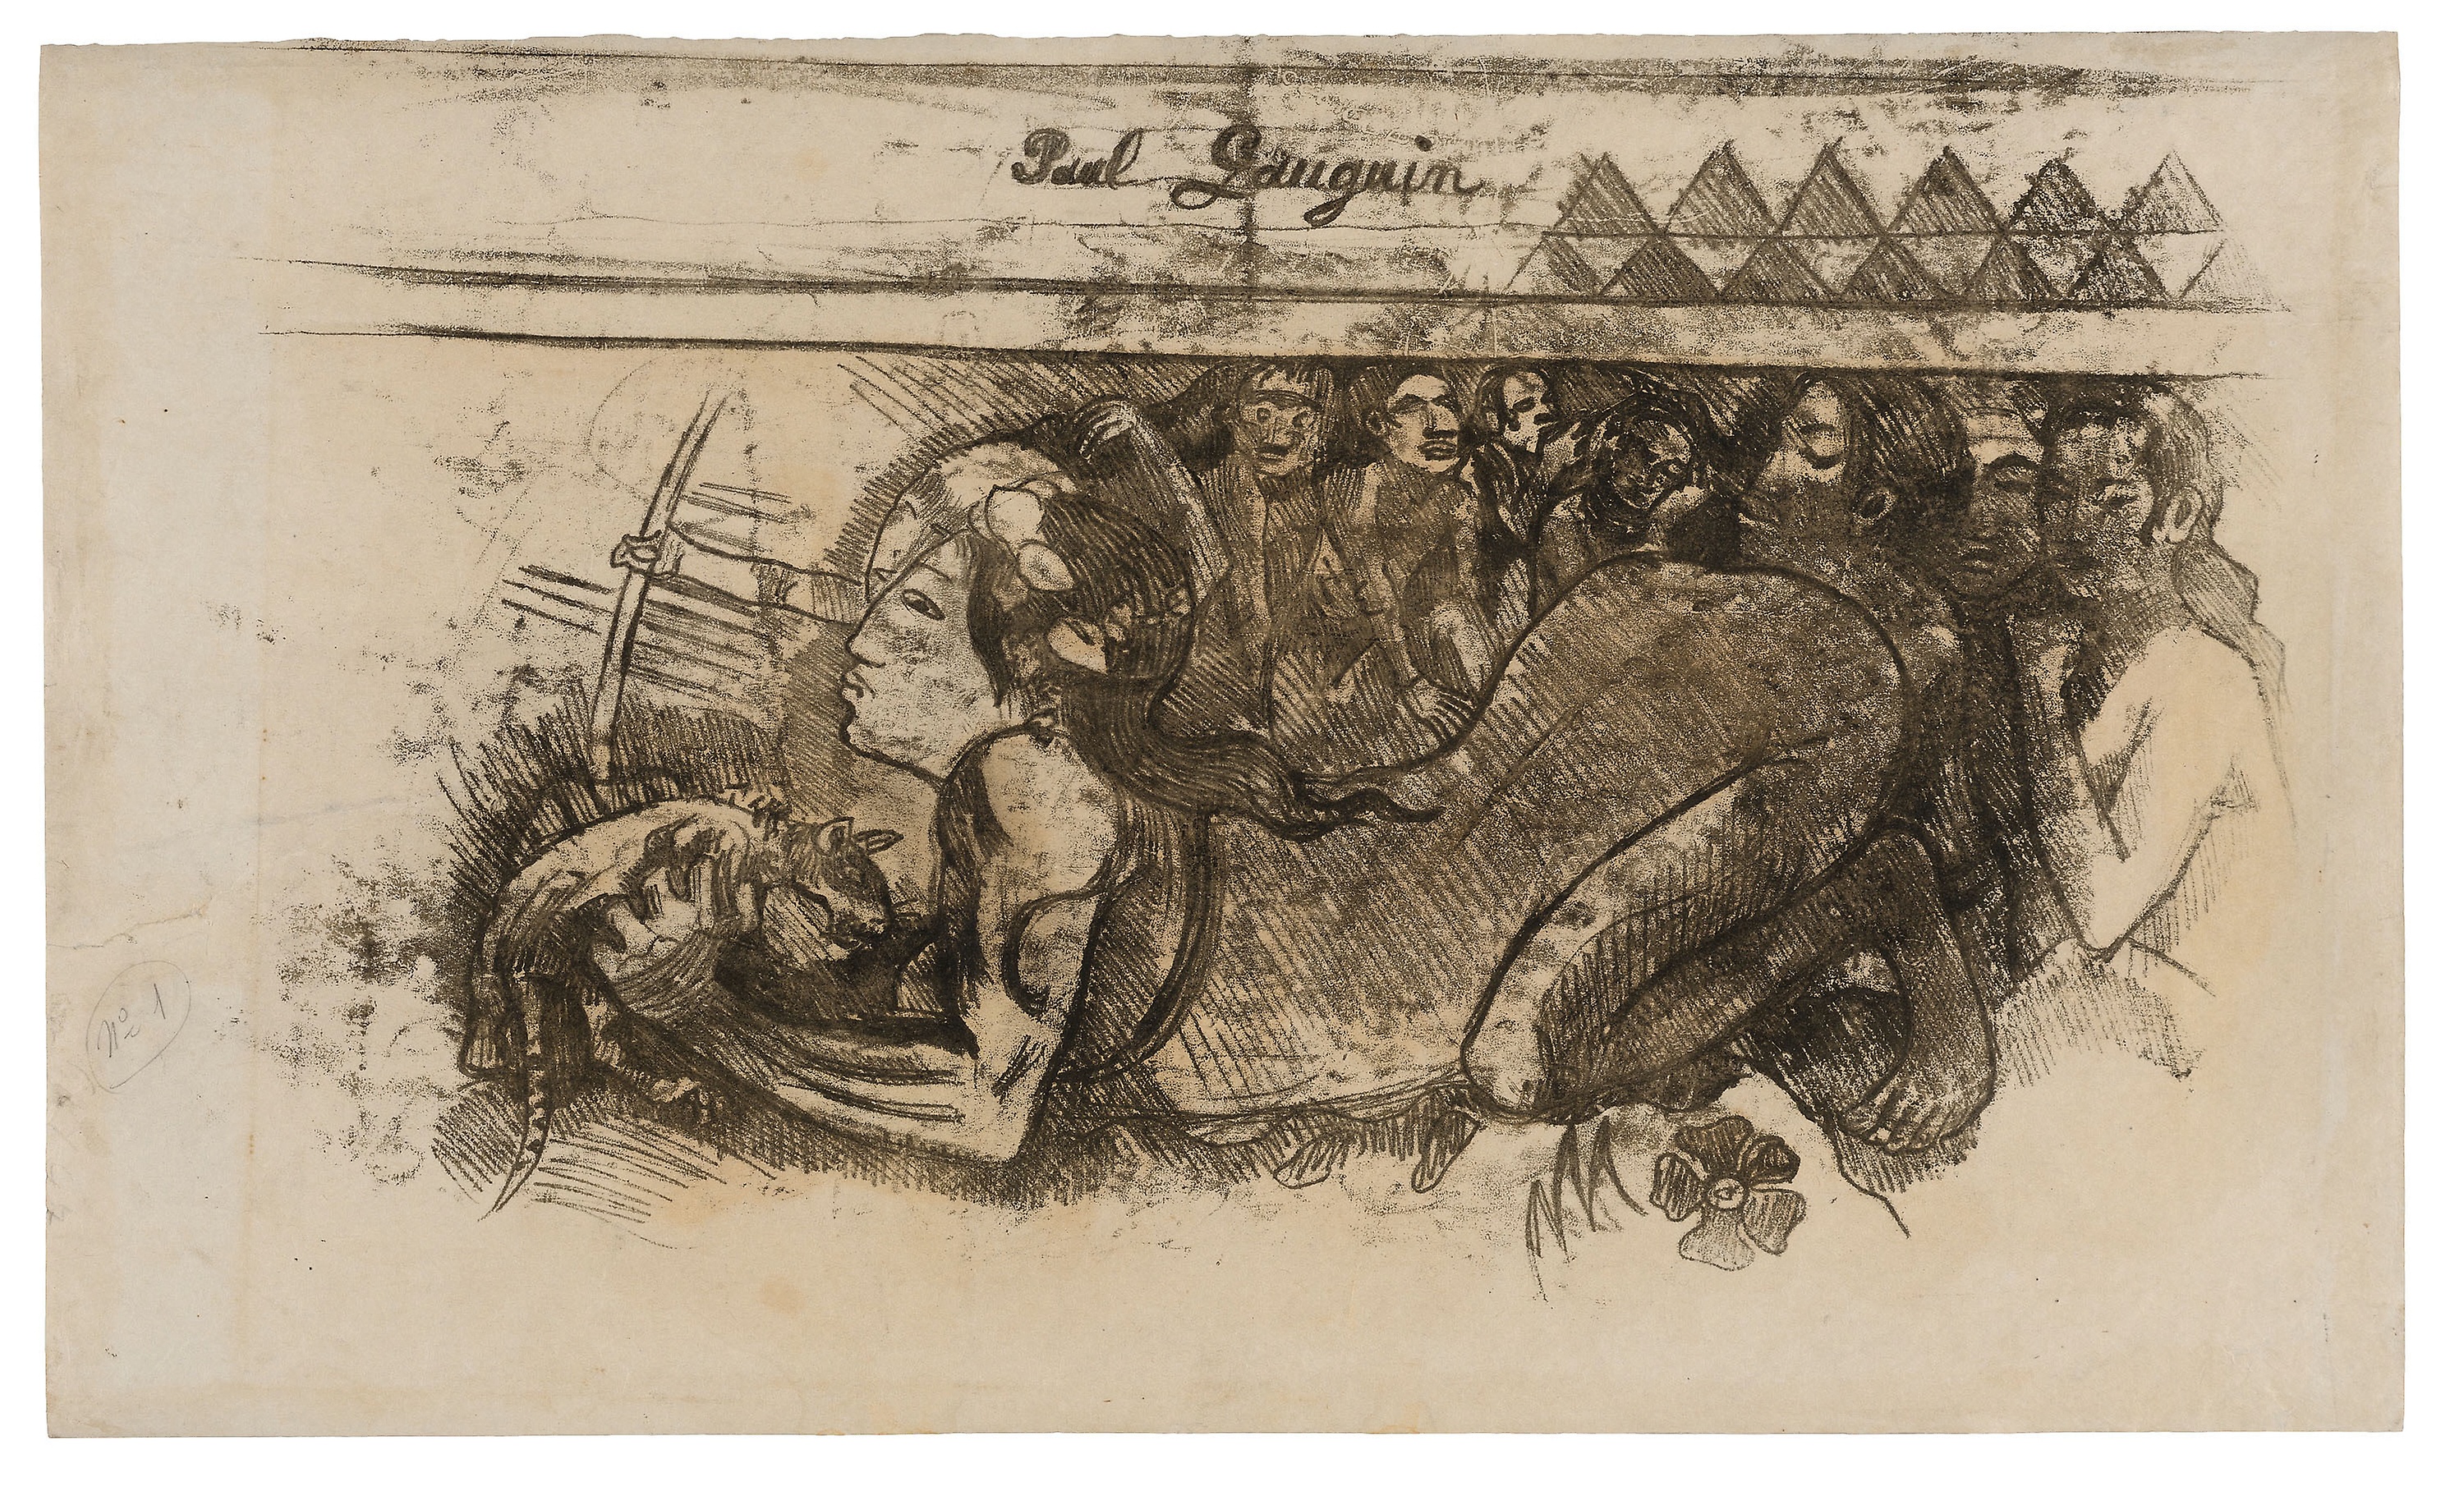 Paul Gauguin
Nº 1